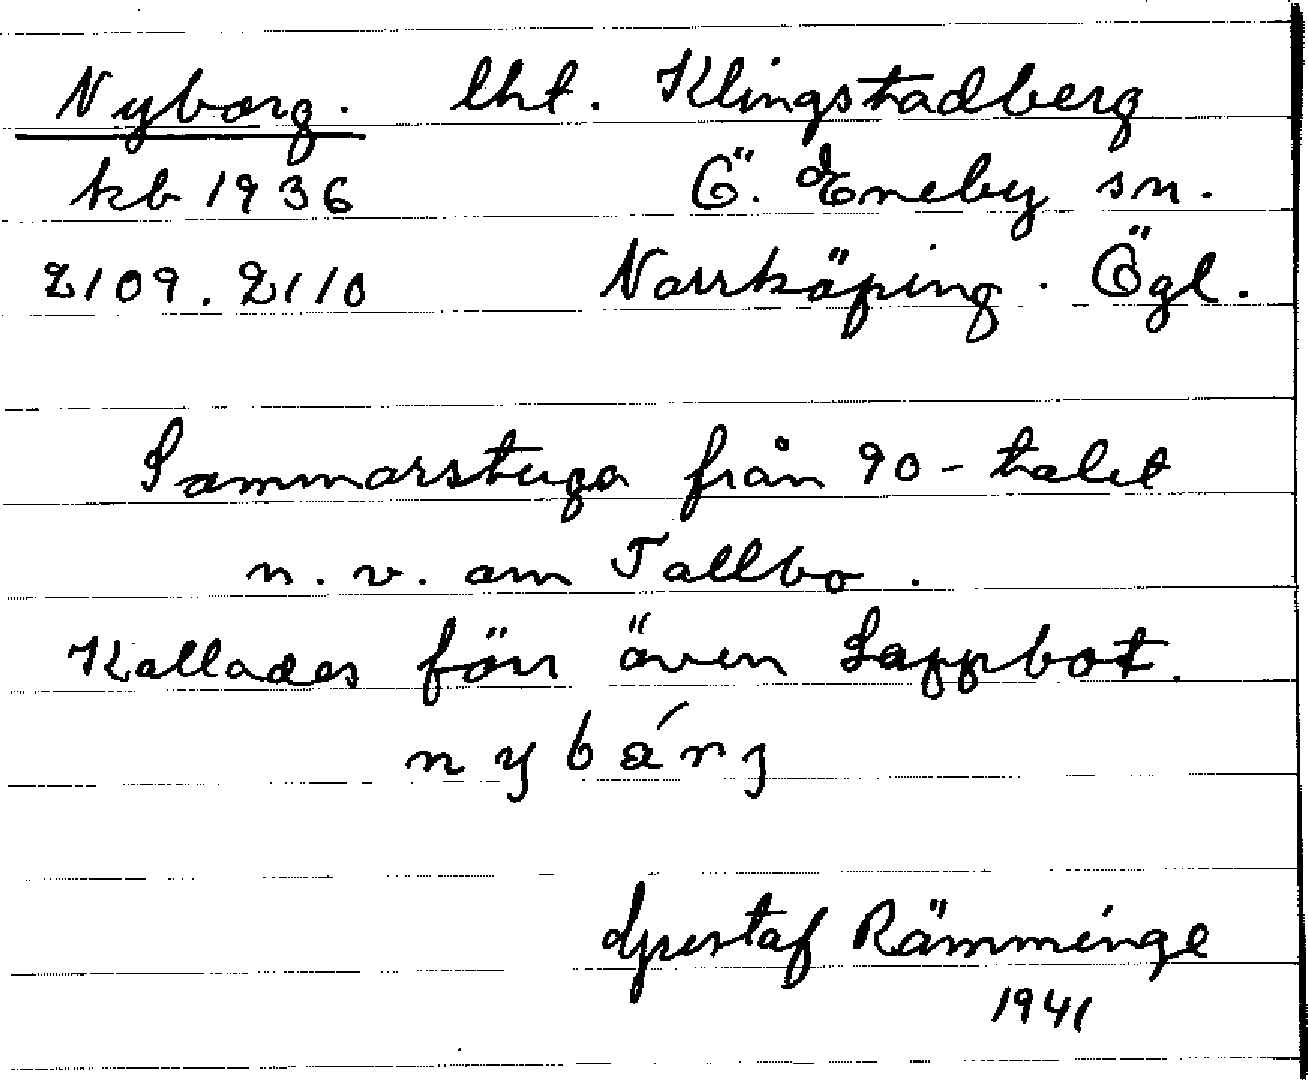 Nyborg. lht. Klingstadberg
kb 1936 Ö. Eneby sn.
2109. 2110 Norrköping. Ögl.
Sommarstuga från 90-talet
n.v. om Tallbo.
Kallades förr även Lappbot.
nybárj
Gustaf Rämminge
1941